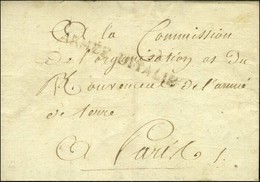 A la Commission
ARMÉE D'ITALIE
De l'organisation et du
Mouvement de l'armée
de terre
A Paris